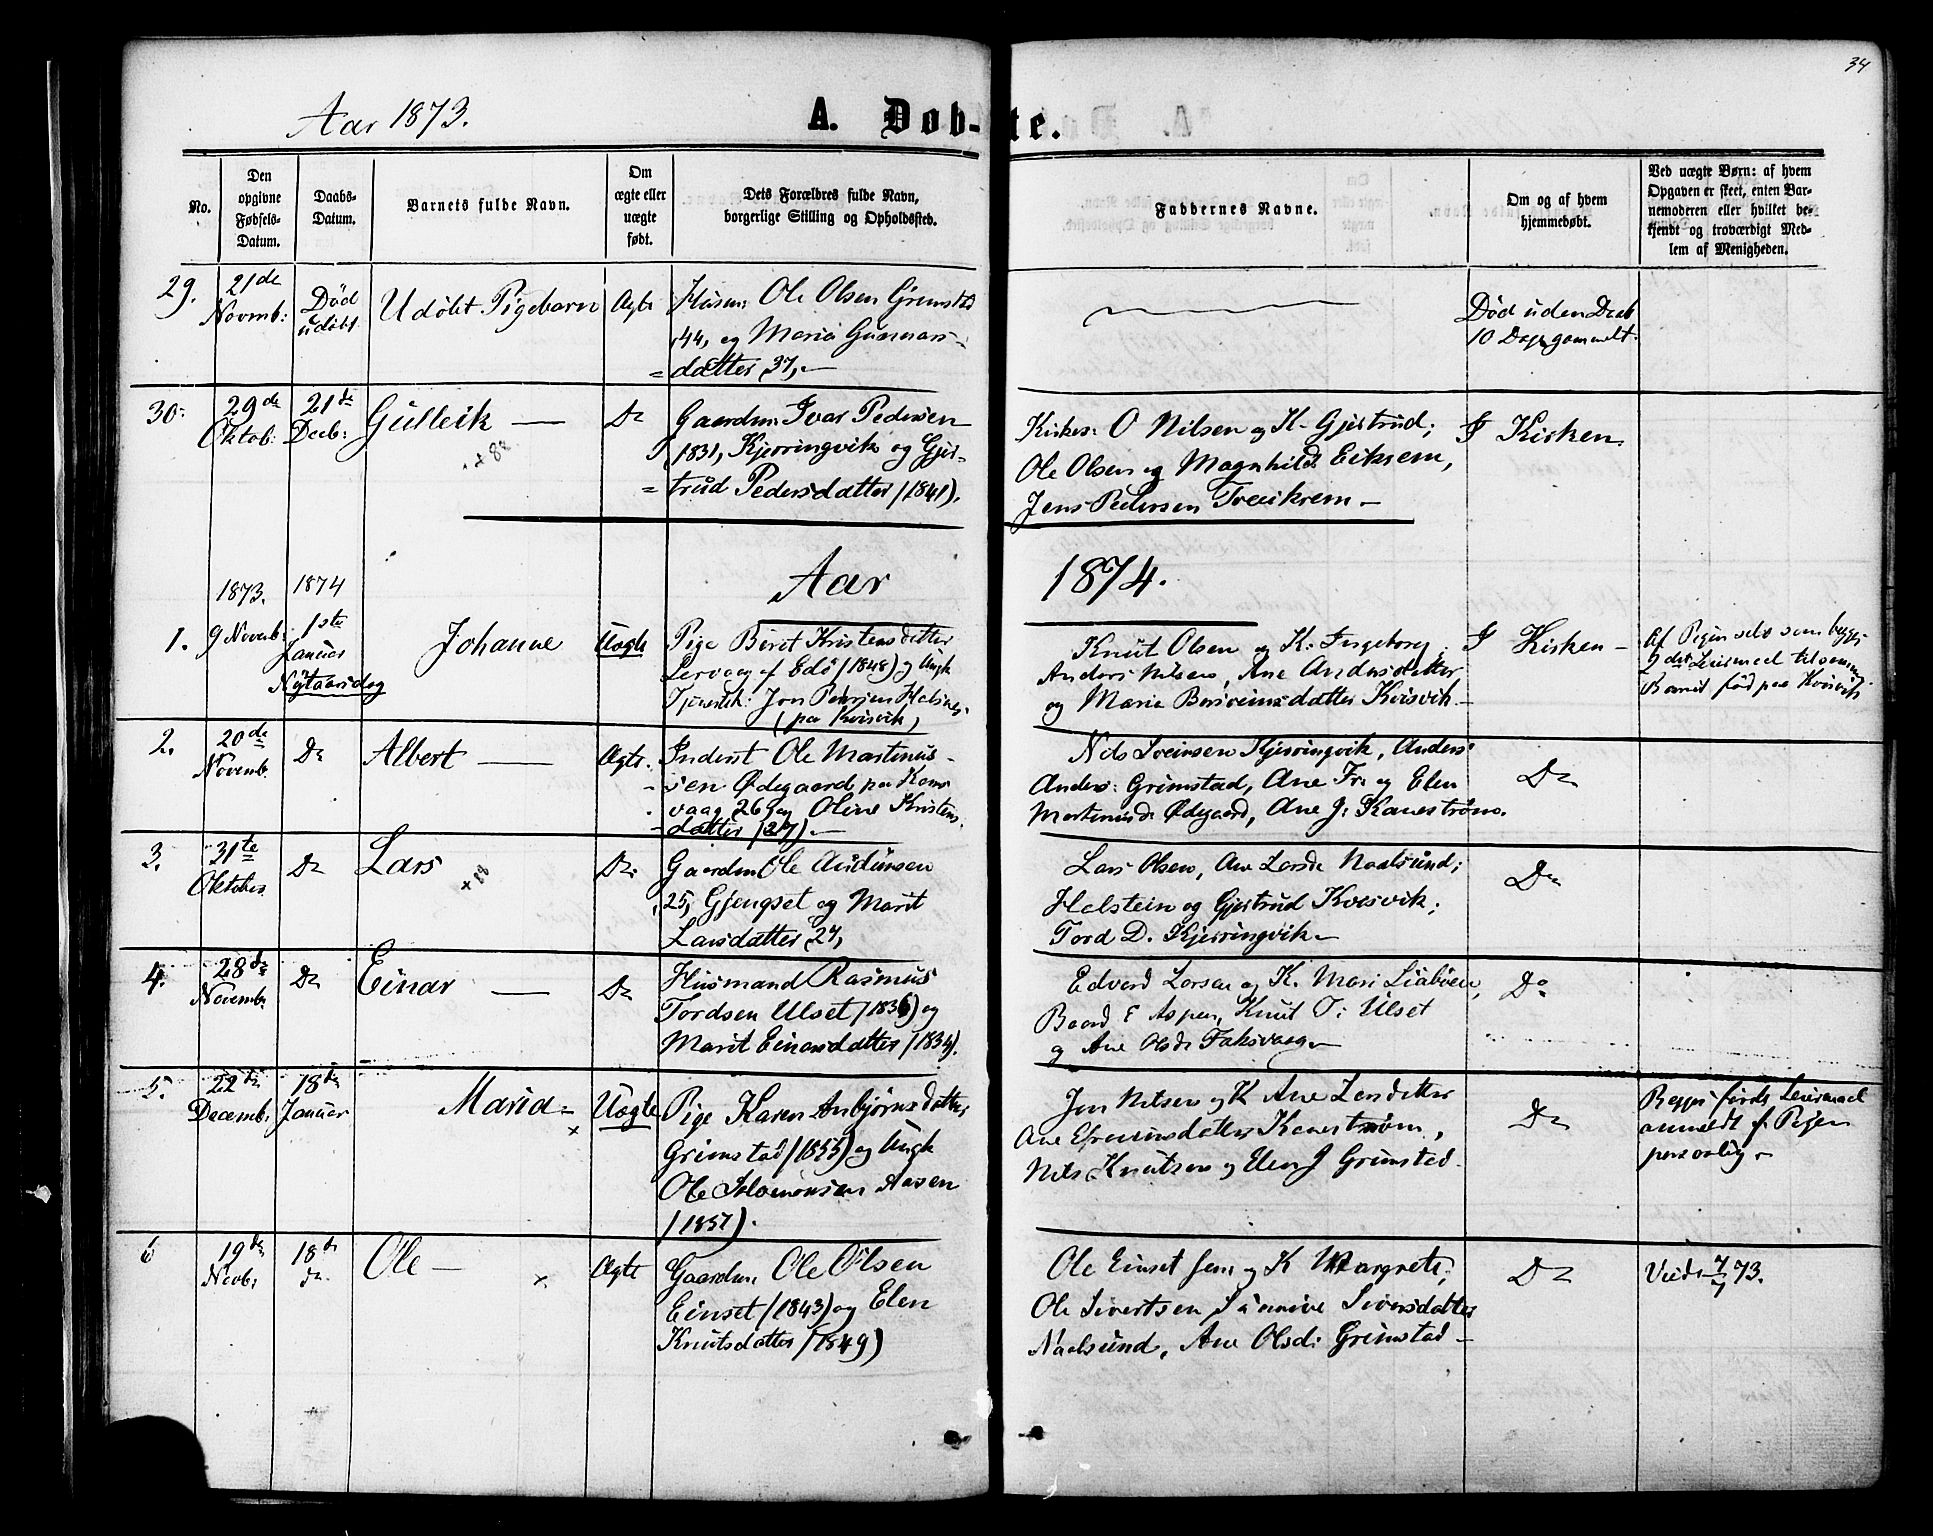 34
Aar 1873.
A. Døb-te.
No.
Den opgivne Fødsels-Datum.
Daabs-Datum.
Barnets fulde Navn.
Om ægte eller uægte født.
Dets Forældres fulde Navn, borgerlige Stilling og Opholdssted.
Faddernes Navne.
Om og af hvem hjemmedøbt.
Ved uægte Børn: af hvem Opgaven er skeet, enten Barnemoderen eller hvilket bekjendt og troværdigt Medlem af Menigheden.
29.
21de Novmb:
Død udøbt.
Udøbt Pigebarn
Ægte
Husm: Ole Olsen Grimstad
44, og Maria Gunnars-
=datter 37,
Død uden Daab
10 Dage gammelt.
30.
29de Oktob:
21de Decb:
Gulleik
+ 88
Do
Gaardm: Ivar Pedersen
(1831, Kjørringvik og Gjer-
=trud Pedersdatter (1841).
Kirkes: O Nilsen og K. Gjertrud;
Ole Olsen og Magnhild Eikrem,
Jens Pedersen Treeikrem -
I Kirken
Aar 1874.
1873.
1874
1.
9 Novemb:
1ste Januar
Nytaarsdag
Johanne
Uægte
Pige Beret Kristensdatter
Lervaag af Edø (1848) og Ungk
Tjenestk: Jon Pedersen Halsnes
(paa Kvisvik)
Knut Olsen og K: Ingeborg;
Anders Nilsen, Ane Andersdatter
og Maria Kvisvik -
I Kirken -
Af Pigen selv som begges
2det Leiermaal tilsammen
Barnet født paa Kvisvik
2.
20de Novemb.
Do
Albert
Ægte.
Inderst Ole Martinus-
sen Ødegaard paa Kors
vaag 26, og Oline Kristens
=datter (27).
Nils Sveinsen Kjørringvik, Anders
Anders: Grimstad, Ane Fr: og Elen
Martinusd: Ødegaard, Ane J: Kanestrøm.
Do
3.
31te Oktober
Do
Lars
+ 88
Do.
Gaardm Ole Audunsen
25, Gjengset og Marit
Larsdatter 27,
Lars Olsen, Ane Larsd: Naalsund;
Halstein og Gjertrud Kvisvik;
Tord D. Kjørringvik
Do
4.
28de Novemb:
Do
Einar
Do
Husmand Rasmus
Tordsen Ulset (1836) og
Marit Einarsdatter (1834).
Edvard Larsen og K. Mari Liabøen,
Baard E Aspen, Knut T: Ulset
og Ane Olsd: Faksvaag
Do
5.
22de Decemb:
18de Januar
Maria
Uægte
Pige Karen Anbjørnsdatter
Grimstad (1855) og Ungk
Ole Salomonsen Aasen
(1857).
Jon Nilsen og K Ane
Ane Kanestrøm,
Nils Knutsen og Elen J Grimstad
Do
Begges første Leiermaal
anmeldt af Pigen
personlig
6
19de Novb:
18de do.
Ole
Ægte
Gaardm. Ole Olsen
Einset (1843) og Elen
Knutsdatter (1849)
Ole Einset Sen: og K Margrete;
Ole Sivertsen, Sunnive Siversdatter
Naalsund, Ane Olsd: Grimstad
Do
Viede 7/7 73.